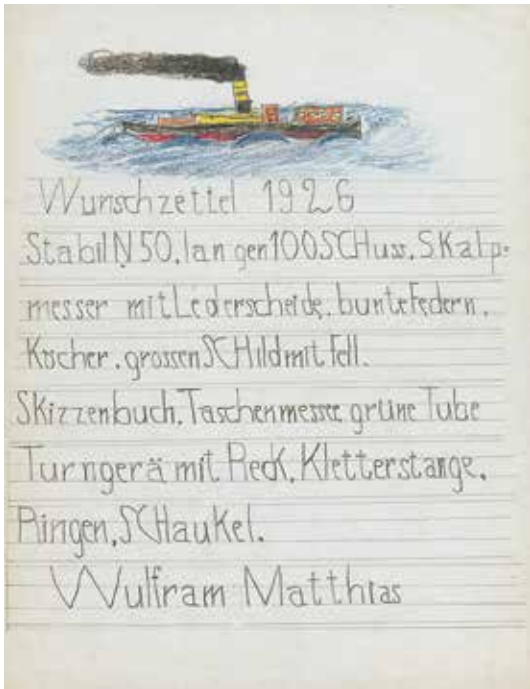 Wunschzettel 1926
Stabil N 50. langen 100 SCHuss. SKalp-
messer mit Lederscheide. bunte Federn.
Köcher. grossen SCHild mit Fell.
SKizzenbuch. Taschenmesser grüne Tube
Turngerä mit Reck. Kletterstange.
Ringen. SCHauKel.
Wulfram Matthias